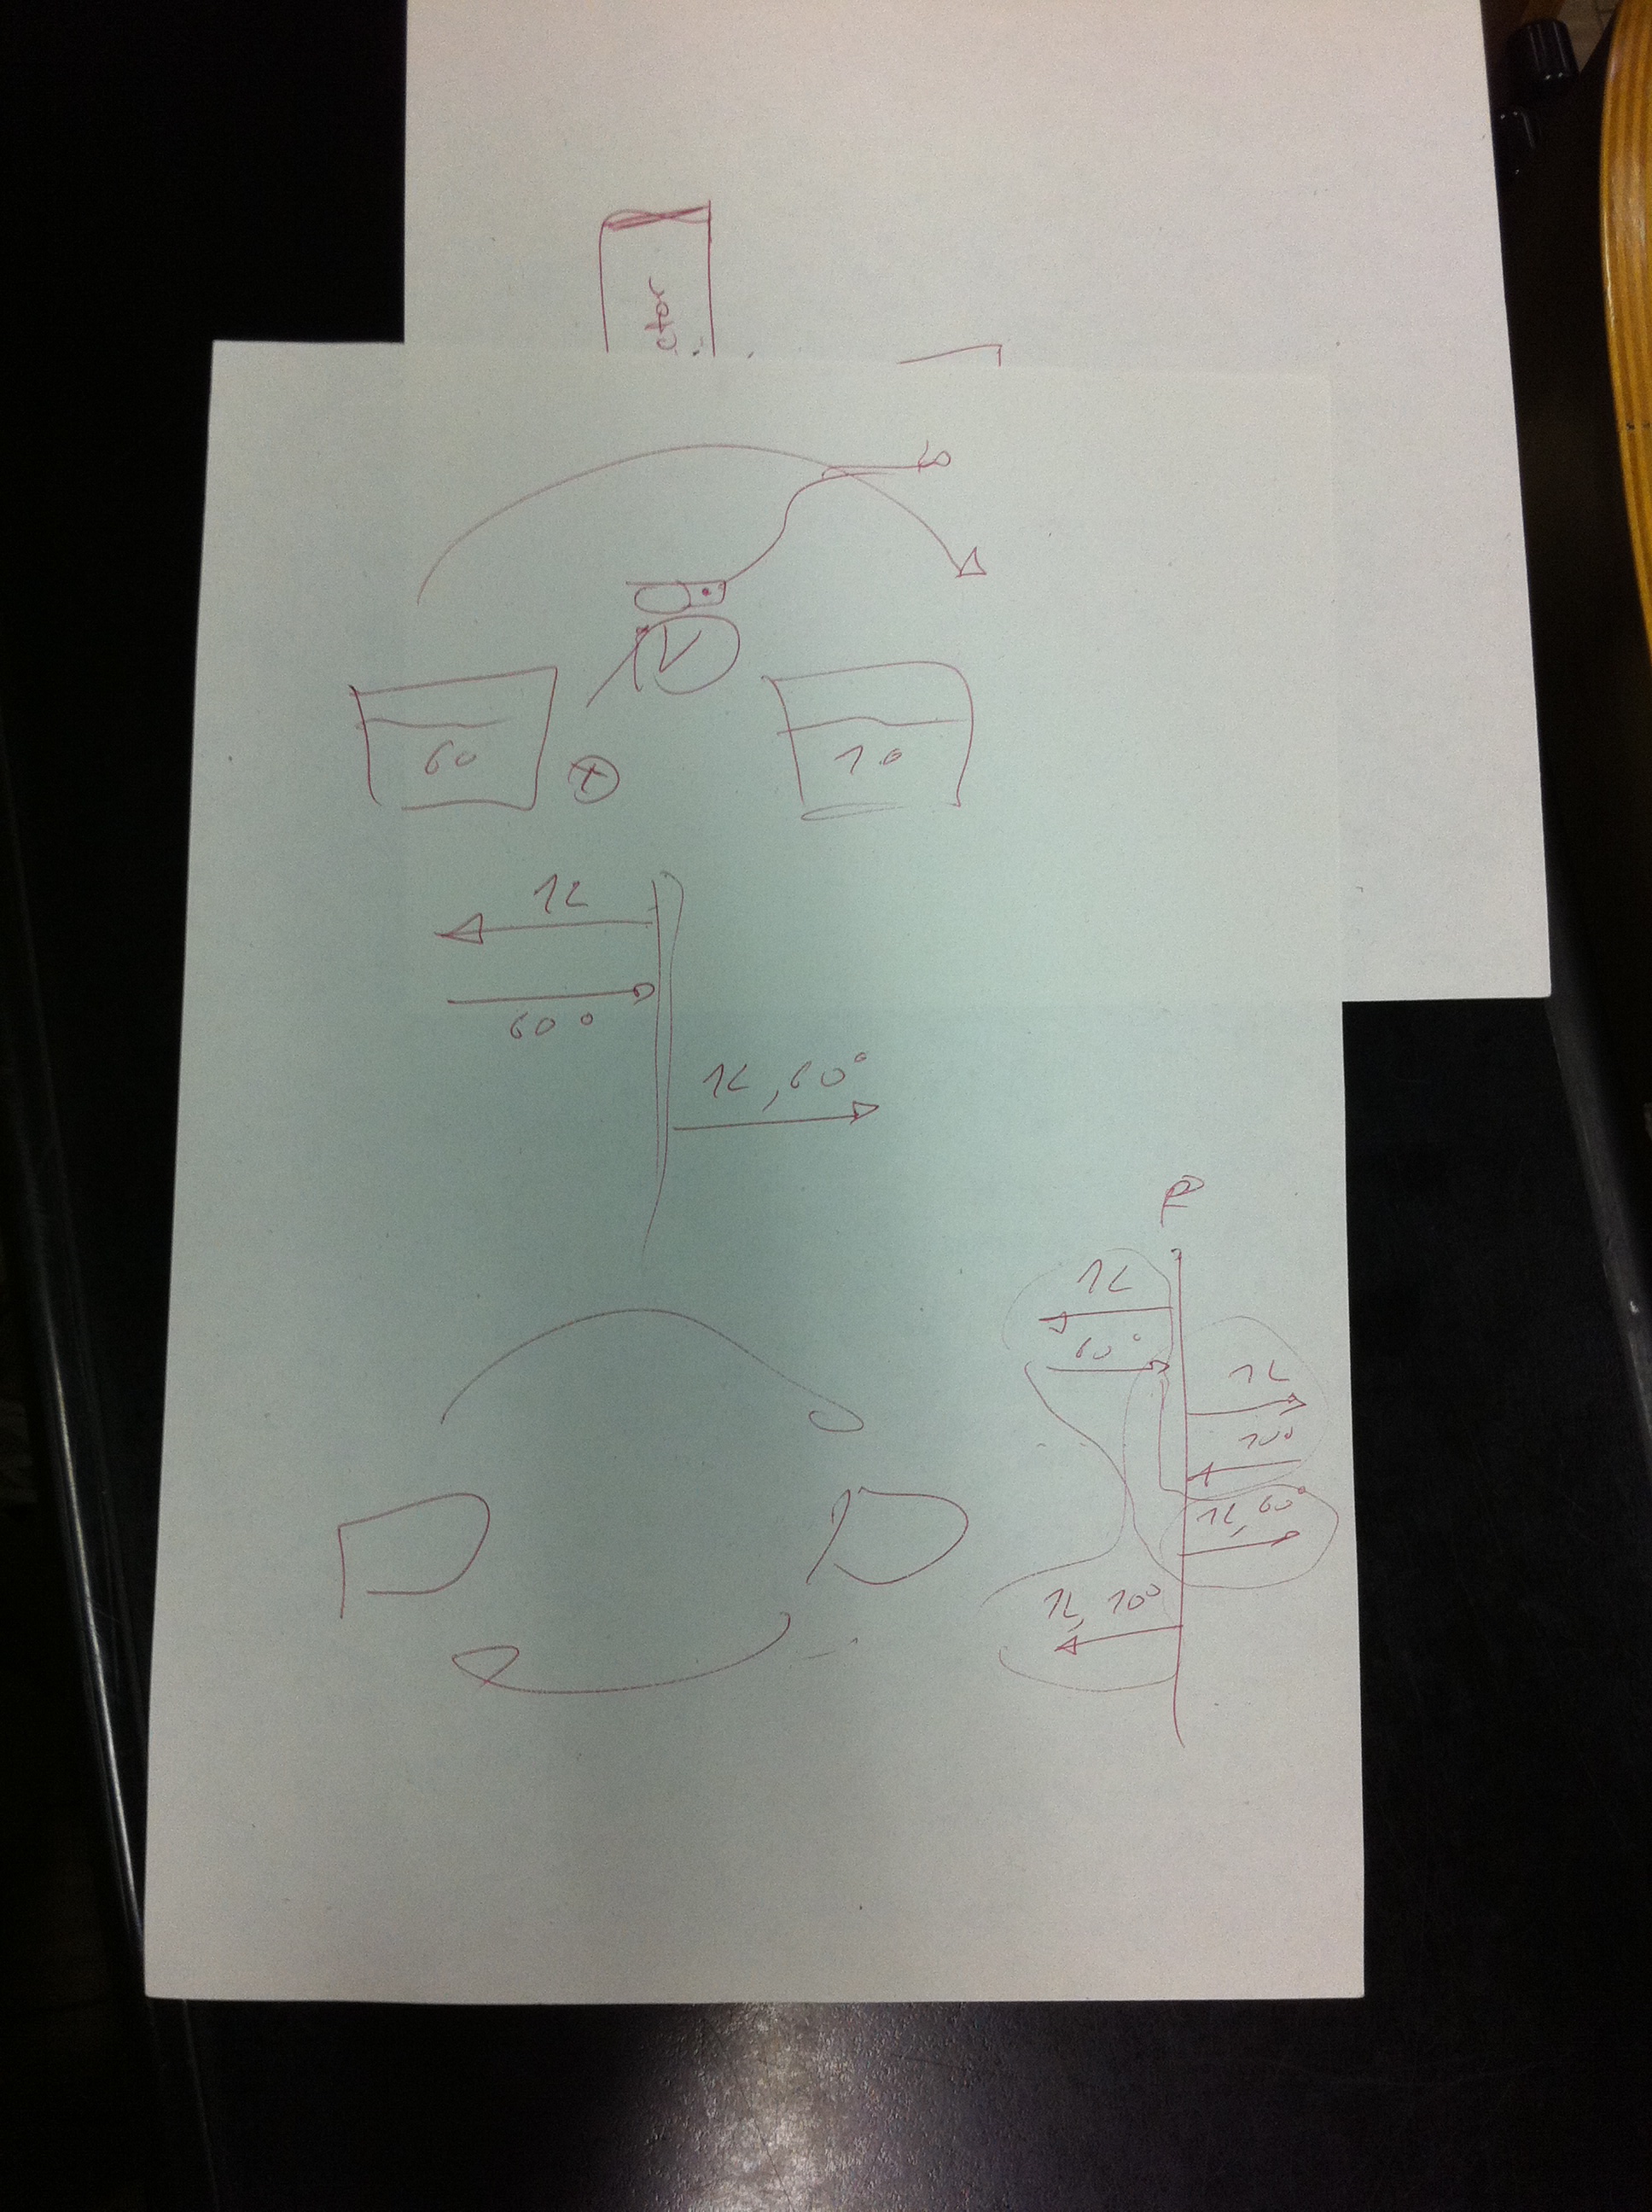 ctor
V
60
10
1L
60°
1L, 60°
P
1L
60°
1L
10°
1L, 60°
1L, 10°